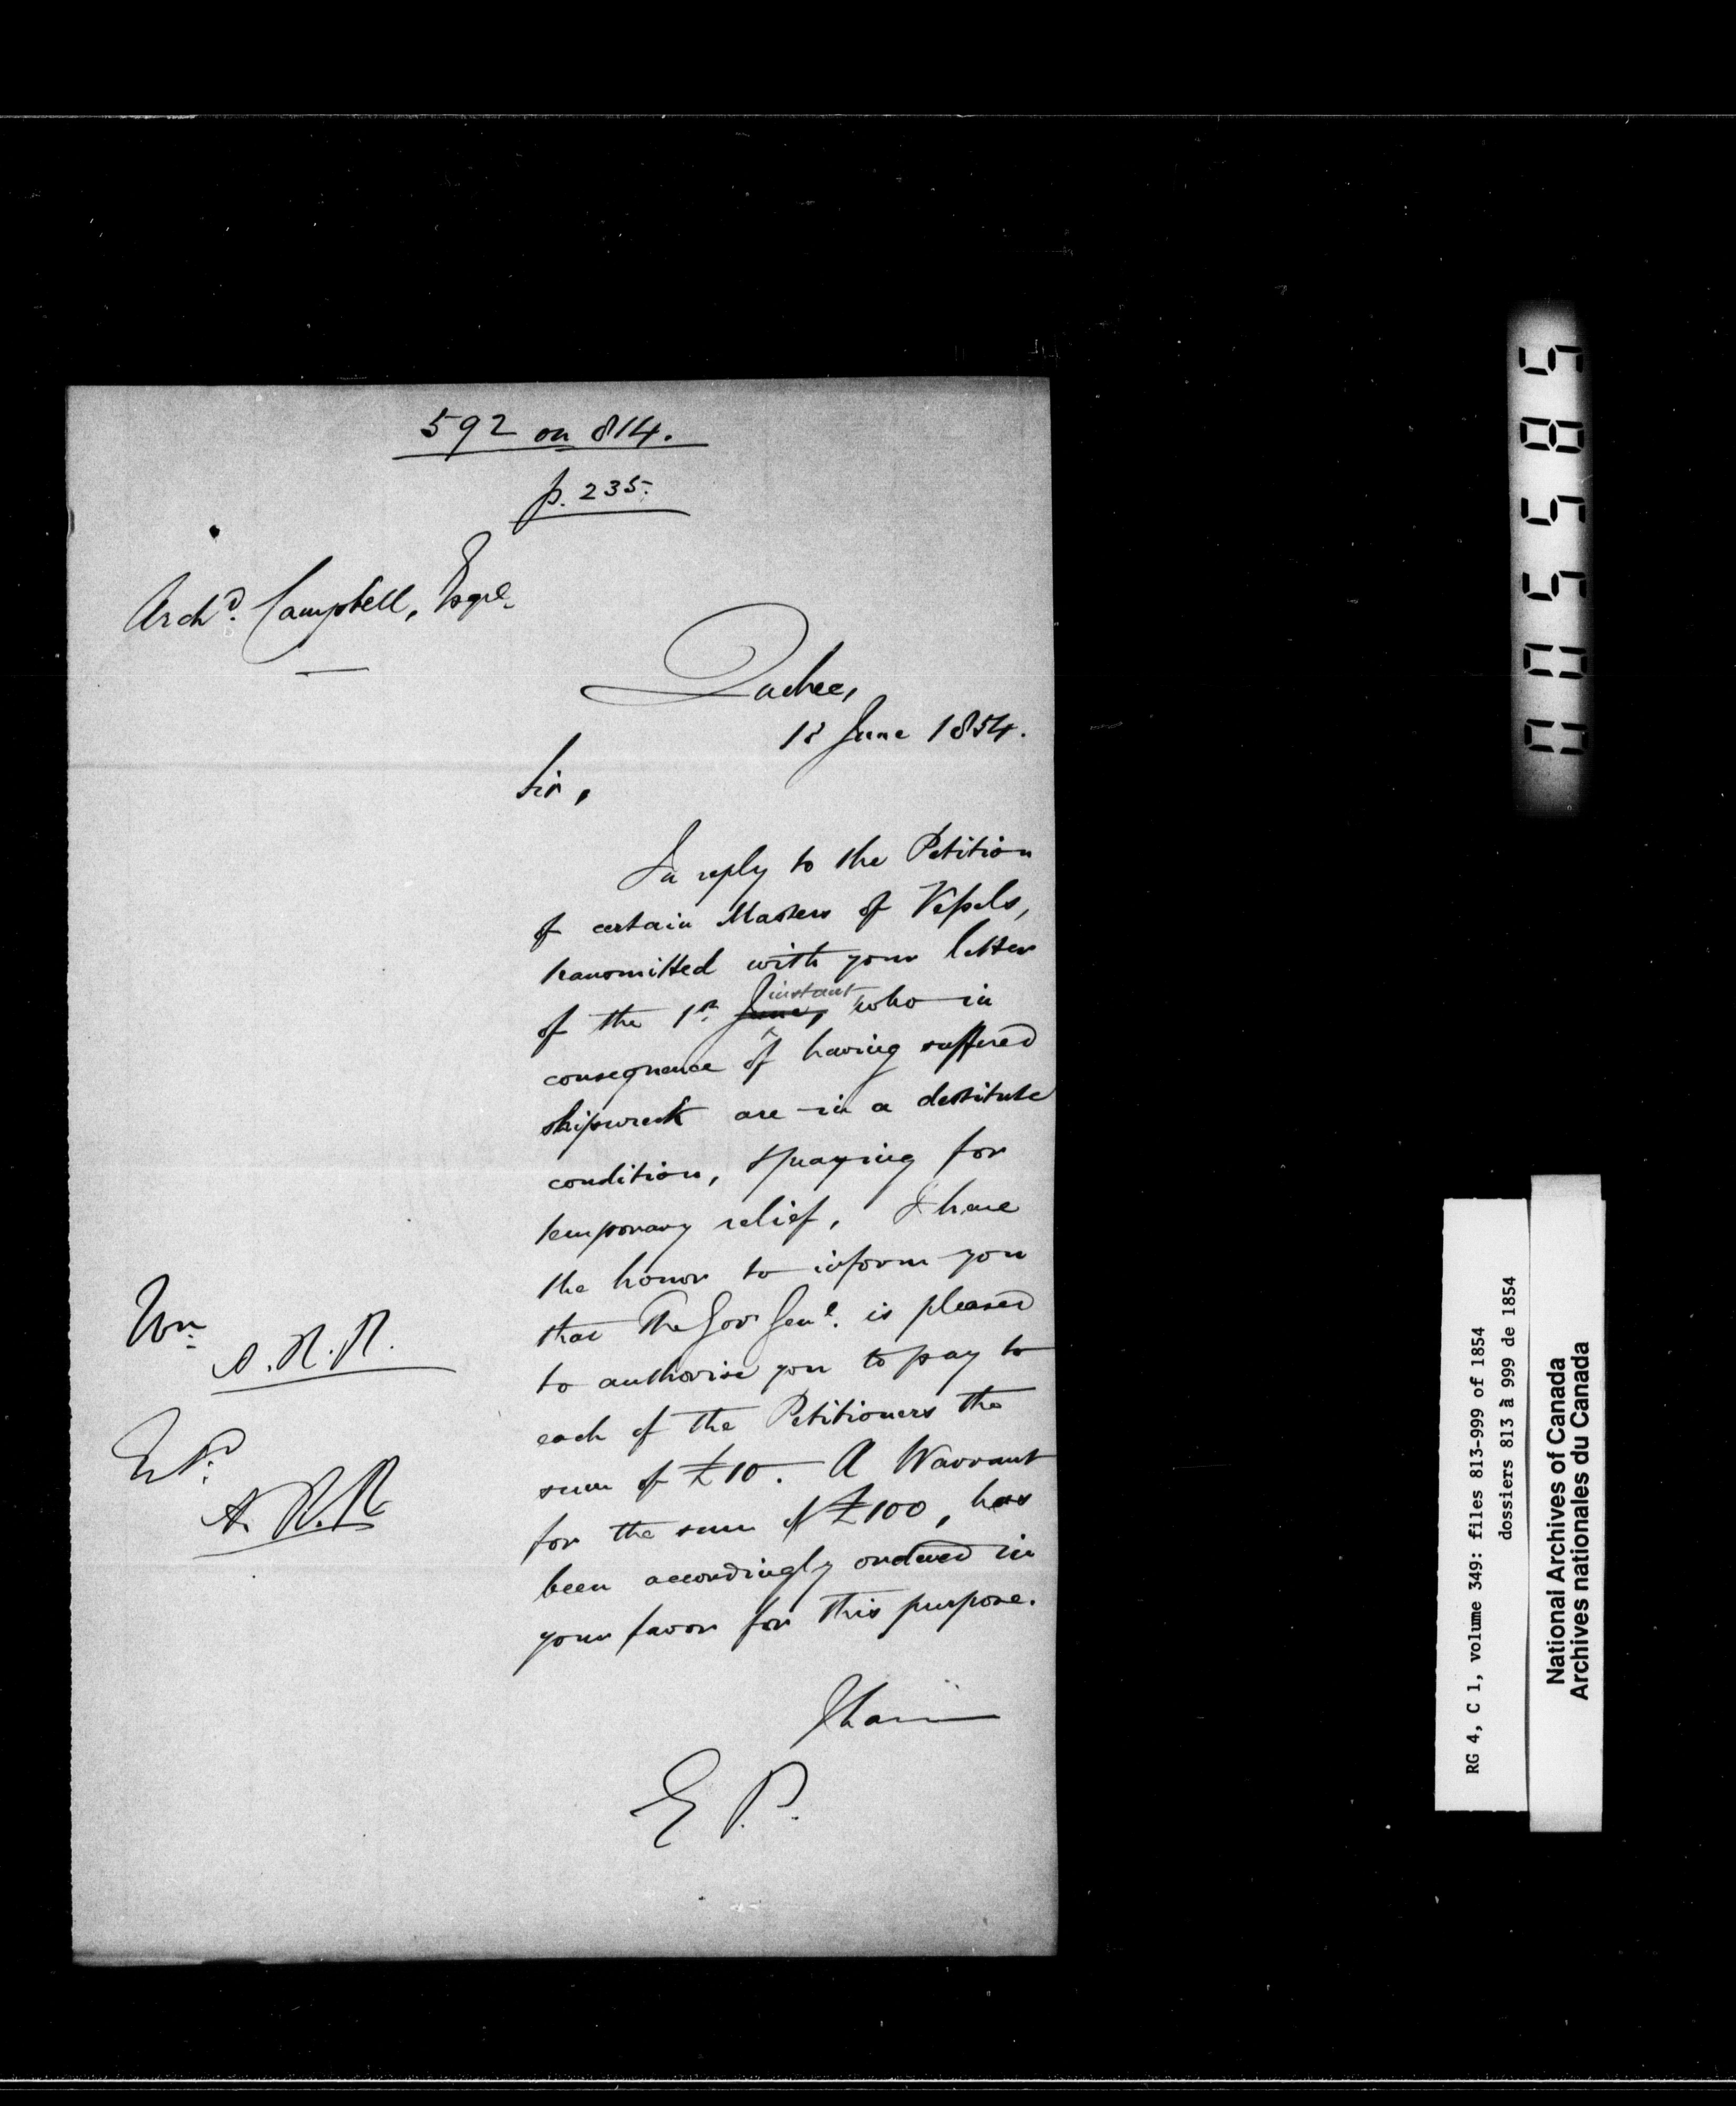 592 on 814.
p. 235.
Archd. Campbell, Esqre.
Quebec,
June 1854.
Sir,
In reply to the Petition
of certain Masters of Vessels,
transmitted with your letter
of the 1st. June, instant who in
consequence of having suffered
shipwreck are in a destitute
condition, & praying for
temporary relief, I have
the honor to inform you
that The Gov Genl. is pleased
to authorise you to pay to
each of the Petitioners the
sum of £10. A Warrant
for the sum of £100, has
been accordingly ordered in
your favor for this purpose.
I have
E. P.
Wn.
A. R. R.
E P.
A. R. R.
005585
RG 4, C 1, volume 349: files 813-999 of 1854
dossiers 813 à 999 de 1854
National Archives of Canada
Archives nationales du Canada